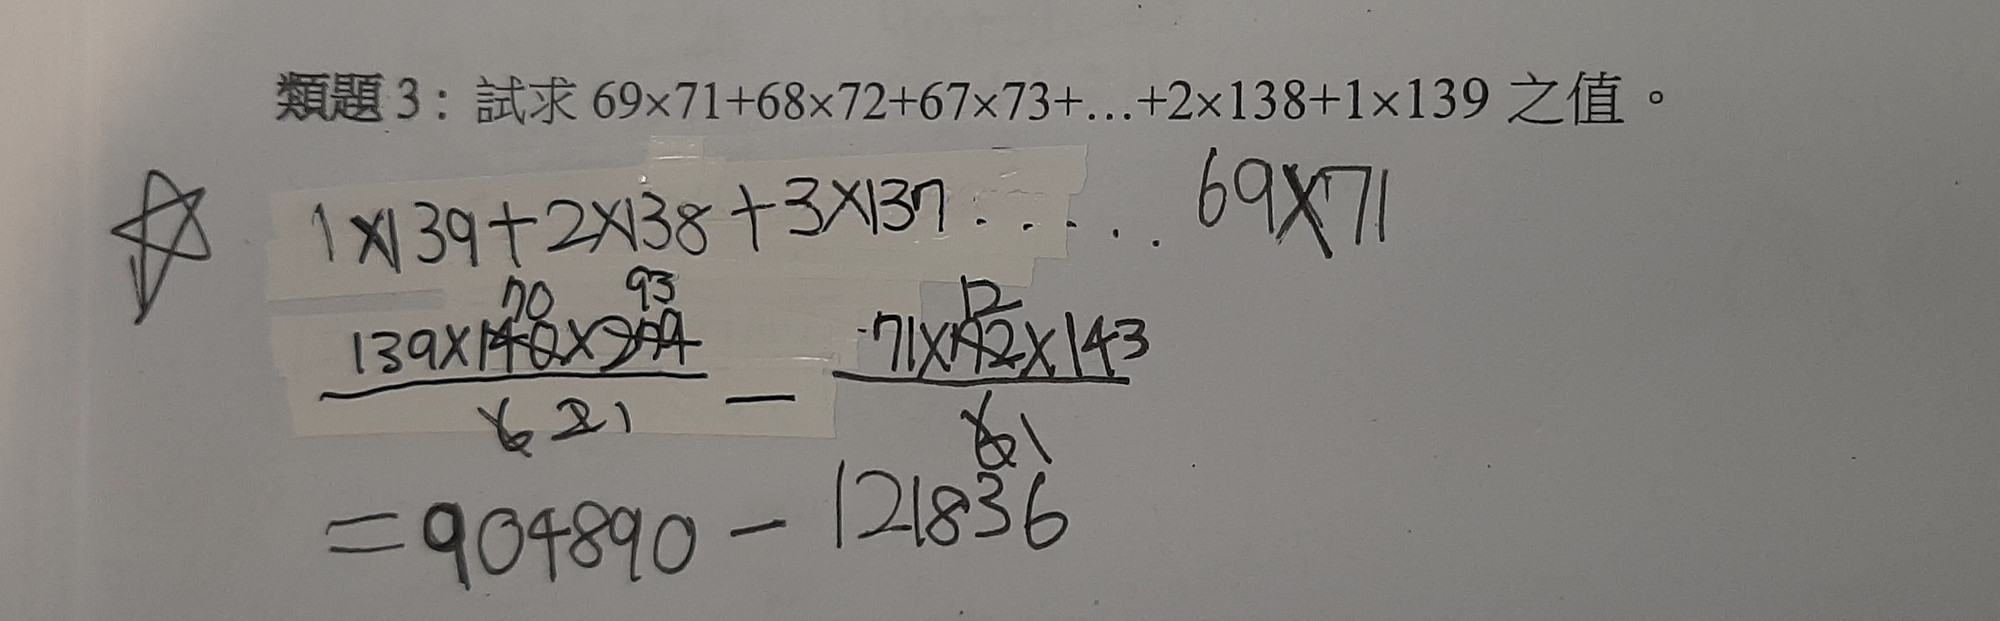 類題 3：試求 69×71+68×72+67×73+…+2×138+1×139 之值。
1×139+2×138+3×137 . . . . . 69×71
70 93 12
139×140×279 — 71×72×143
6 2 1 6 1
=904890 − 121836